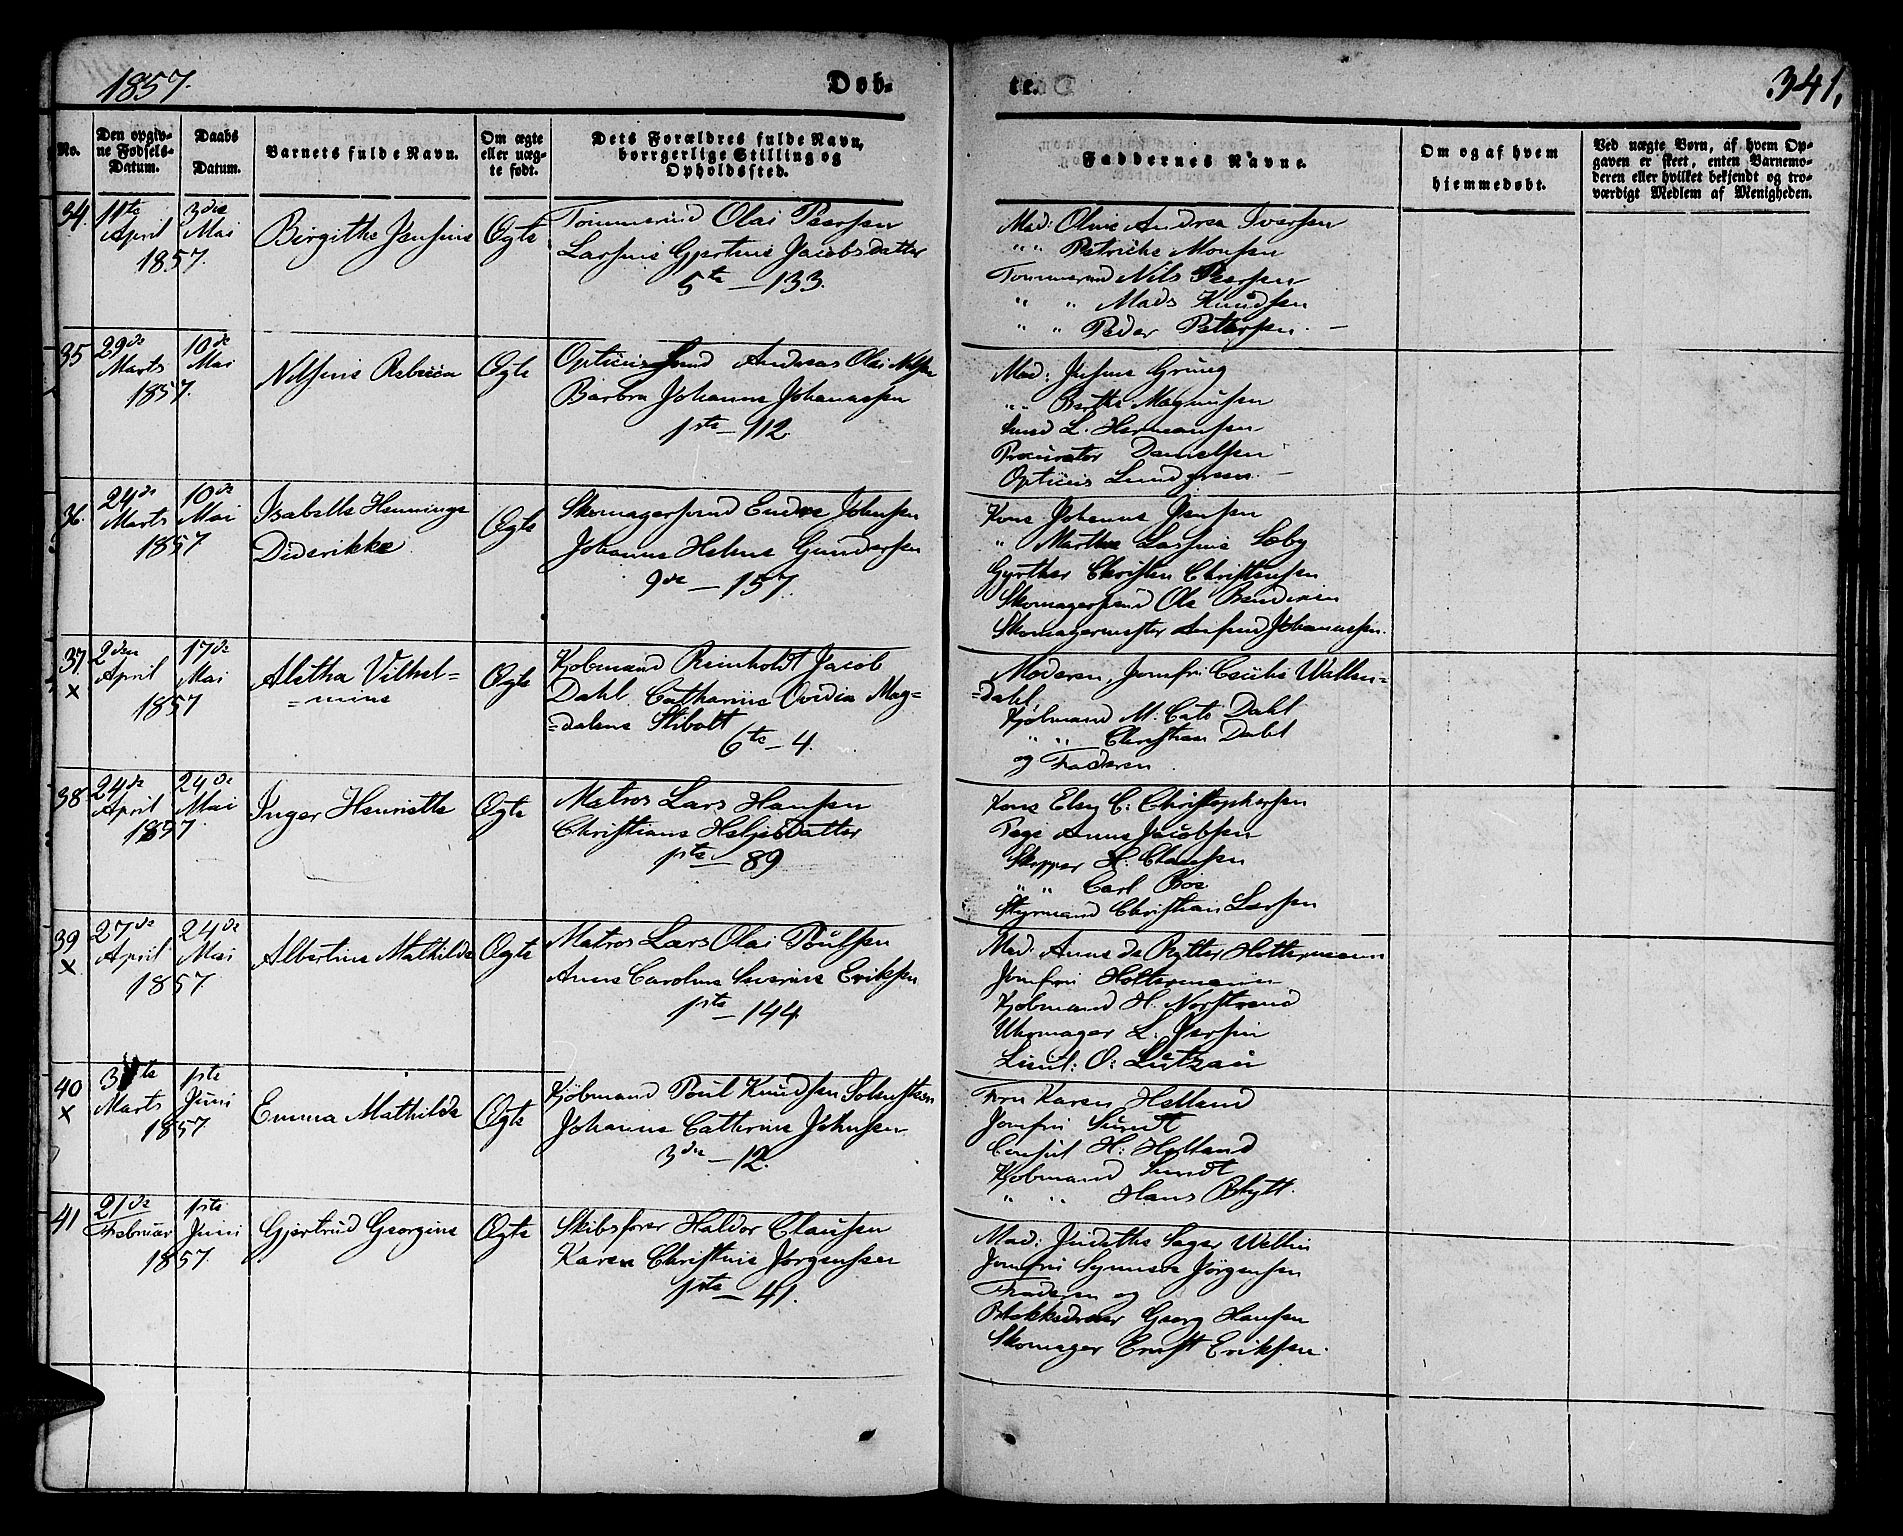 1857.
Døb-
te.
341.
No.
Den opgiv-
ne Fødsels-
Datum.
Daabs
Datum.
Barnets fulde Navn.
Om ægte
eller uæg-
te født.
Dets Forældres fulde Navn,
borgerlige Stilling og
Opholdssted.
Faddernes Navne.
Om og af hvem
hjemmedøbt.
Ved uægte Børn, af hvem Op-
gaven er skeet, enten Barnemo-
deren eller hvilket bekjendt og tro-
værdigt Medlem af Menigheden.
34.
11te April 1857
3die Mai
Birgithe Jensine
Ægte
Tømmerd Olai Peersen
Larsine Gjertine Jacobsdatter
5te – 133.
Mad: Oline Andrea Iversen
" " Petriche Monsen
Tømmermd Nils Peersen
" " Mads Knudsen
" " Peder Petersen. –
35
29de Marts 1857.
10de Mai
Nilsine Rebecca
Ægte
Opticus Andreas Olai Nilsen
Barbra Johanne Johannesen
1ste – 112.
Mad: Jensine Grung
" " Berthe Magnusen
L. Hermansen
Procurator Danielsen
Opticus Lundgreen –
36.
24de Marts 1857
10de Mai
Isabelle Henninge
Diderikke
Ægte
Skomagersvend Endre Johnsen
Johanne Helene Gundersen
9de – 157.
Kone Johanne Jensen
" Marthe Larsine Soby
Gyrther Christen Christensen
Skomagersvend Ole
Skomagermester Johannesen.
37.
x
2den April 1857
17de Mai
Aletha Vilhel-
=mine
Ægte
Kjøbmand Reinholdt Jacob
Dahl. Catharine Ovidia Mag-
=dalena Stibolt
6te – 4.
Moderen, Jomfru Wallen-
=dahl
Kjøbmand M. Cato Dahl
" " Christian Dahl
og Faderen.
38
24de April 1857
24de Mai
Inger Henriette
Ægte
Matros Lars Hansen
Christiane Helgesdatter
1ste – 89
Kone Elsy C. Christophersen
Pige Anne Jacobsen
Skipper H. Clausen
" " Carl Boe
Styrmand Christian Larsen
39
x
27de April 1857
24de Mai
Albertine Mathilde
Ægte
Matros Lars Olai Poulsen
Anne Caroline Severine Eriksen
1ste – 144.
Mad: Anne de Rytter Holtermann
Jomfru Holtermann
Kjøbmand H. Norstrand
Uhrmager L. Jersin
Lieut: O: Lützau
40
x
Marts 1857
1ste Juni
Emma Mathilde
Ægte
Kjøbmand Poul Knudsen
Johanne Cathrine Johnsen
3die – 12.
Fru Karen Helland
Jomfru Sundt
Consul H: Helland
Kjøbmand Sundt
" " Hans Blytt.
41
21de Februar 1857.
1ste Juni
Gjertrud Georgine
Ægte
Skibsfører Haldor Clausen
Karen Christine Jørgensen
1ste – 41.
Mad: Judithe Wellin
Jomfru Synneve Jørgensen
Faderen og
Blokkedreier Georg Hansen
Skomager Ernst Eriksen.